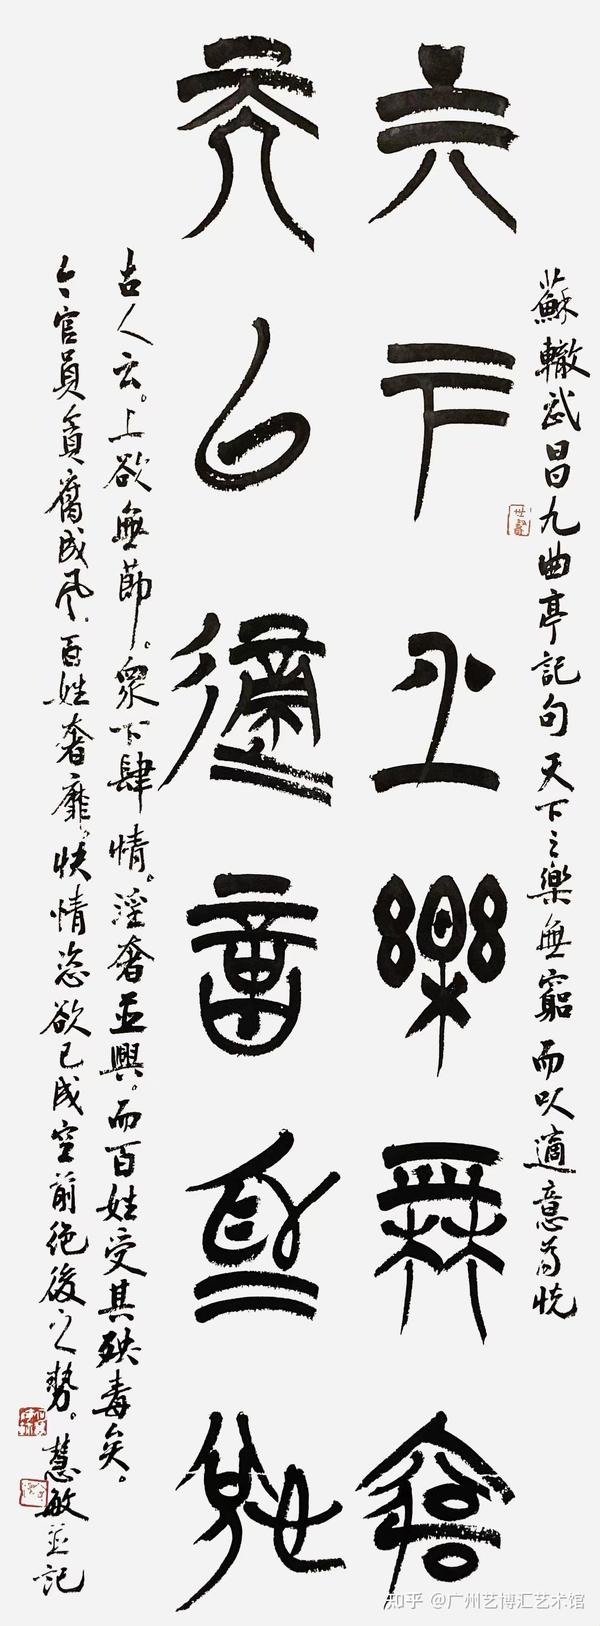 蘇轍武昌九曲亭記句天下之樂無窮而以適意為悅
天下之樂無窮
而以適意為悅
古人云。上欲無節。眾下肆情。淫奢並興。而百姓受其殃毒矣。
今官員貪腐成風。百姓奢靡。快情恣欲已成空前絕後之勢。慧敏並記
知乎 @广州艺博汇艺术馆